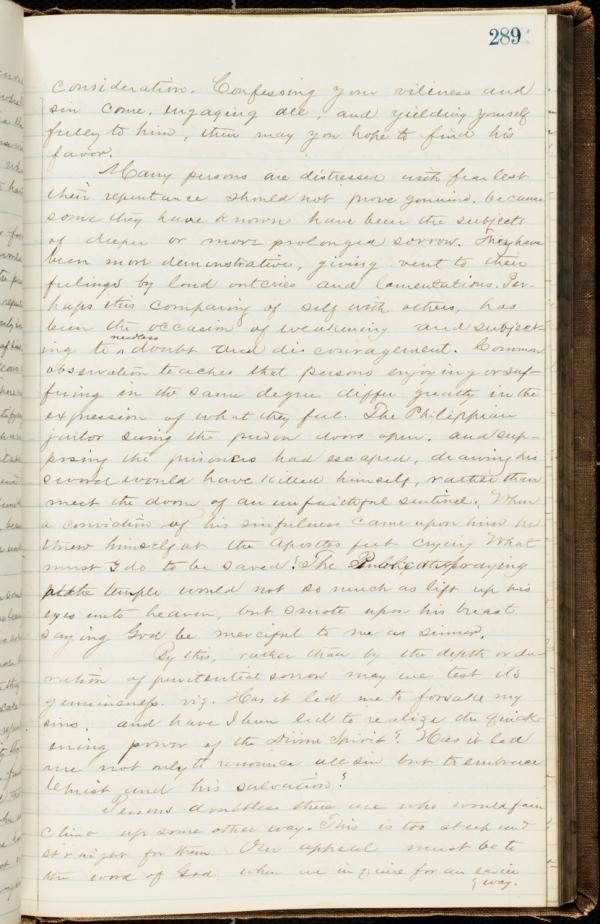 289
consideration. Confessing your vileness and
sin come, engaging all, and yielding yourself
fully to him, then may you hope to find his
favor.
Many persons are distressed with fear lest
their repentance should not prove genuine, because
some they have known have been the subjects
of deeper or more prolonged sorrow. They have
been more demonstrative, giving vent to their
feelings by loud outcries and lamentations. Per-
haps this comparing of self with others, has
been the occasion of wearying and subject-
needless
ing to ^ doubt and discouragement. Common
observation teaches that persons enjoying or suf-
fering in the same degree differ greatly in the
expression of what they feel. The Philippian
jailor seeing the prison doors open, and sup-
posing the prisoners had escaped, drawing his
sword would have killed himself, rather than
meet the doom of an unfaithful sentinel. When
a conviction of his sinfulness came upon him he
threw himself at the Apostles feet crying What
must I do to be saved! The Publican praying
at the temple would not so much as lift up his
eyes unto heaven, but smote upon his breast
saying God be merciful to me as sinner.
By this, rather than by the depth or du-
ration of penitential sorrow may we test its
genuineness. viz. Has it led me to forsake my
sins and have I been led to realize the quick-
ening power of the Divine Spirit? Has it led
me not only to renounce all sin but to embrace
Christ and his salvation?
Persons doubtless there are who would fain
climb up some other way. This is too steep and
straight for them. Our appeal must be to
the word of God when we inquire for an easier
way.